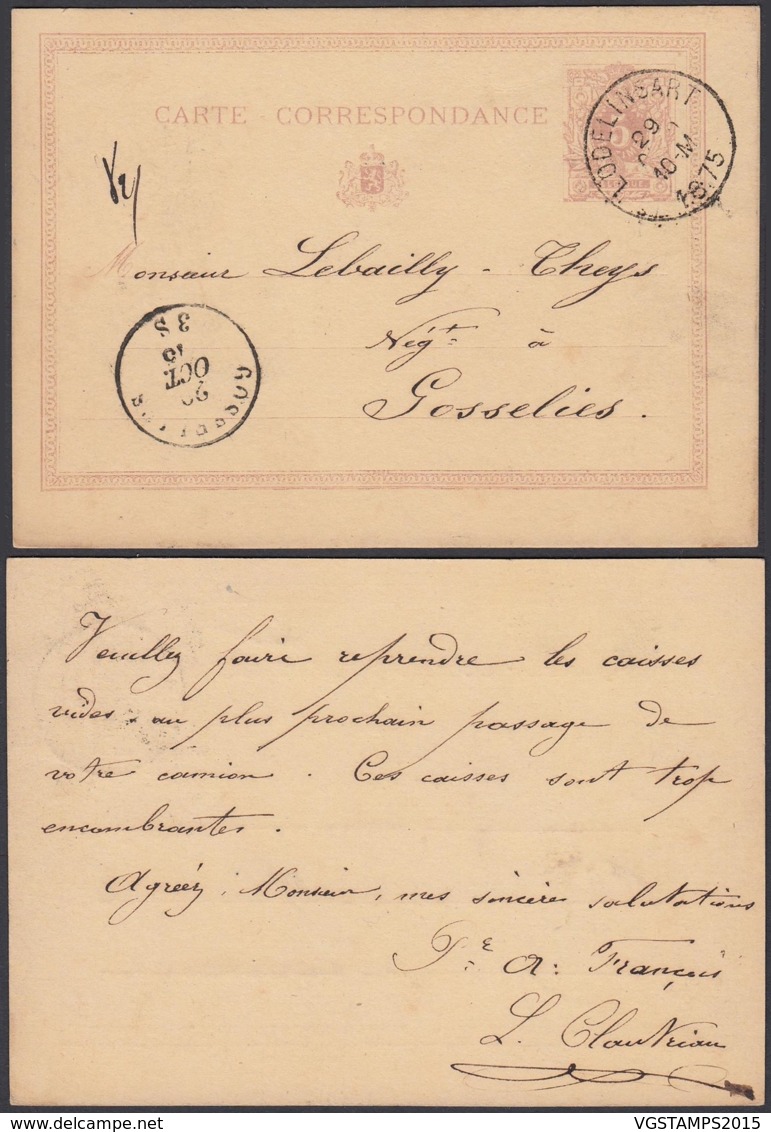 CARTE CORRESPONDANCE
LODELINSART
29
10-M
1875
BELGIQUE
Monsieur Lebailly - Theys
Négt à
Gosselies.
GOSSELIES
OCT.
3 S
Veuillez faire reprendre les caisses
vides au plus prochain passage de
votre camion. Ces caisses sont trop
encombrantes.
Agréez, Monsieur, mes sincère salutations
A: François
L.
VGSTAMPS2015